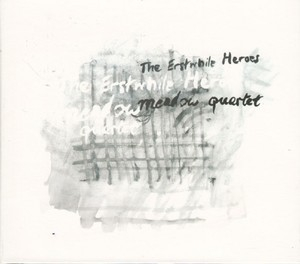 The Erstwhile Heroes
meadow quartet
The Erstwhile Her
meadow
quartet